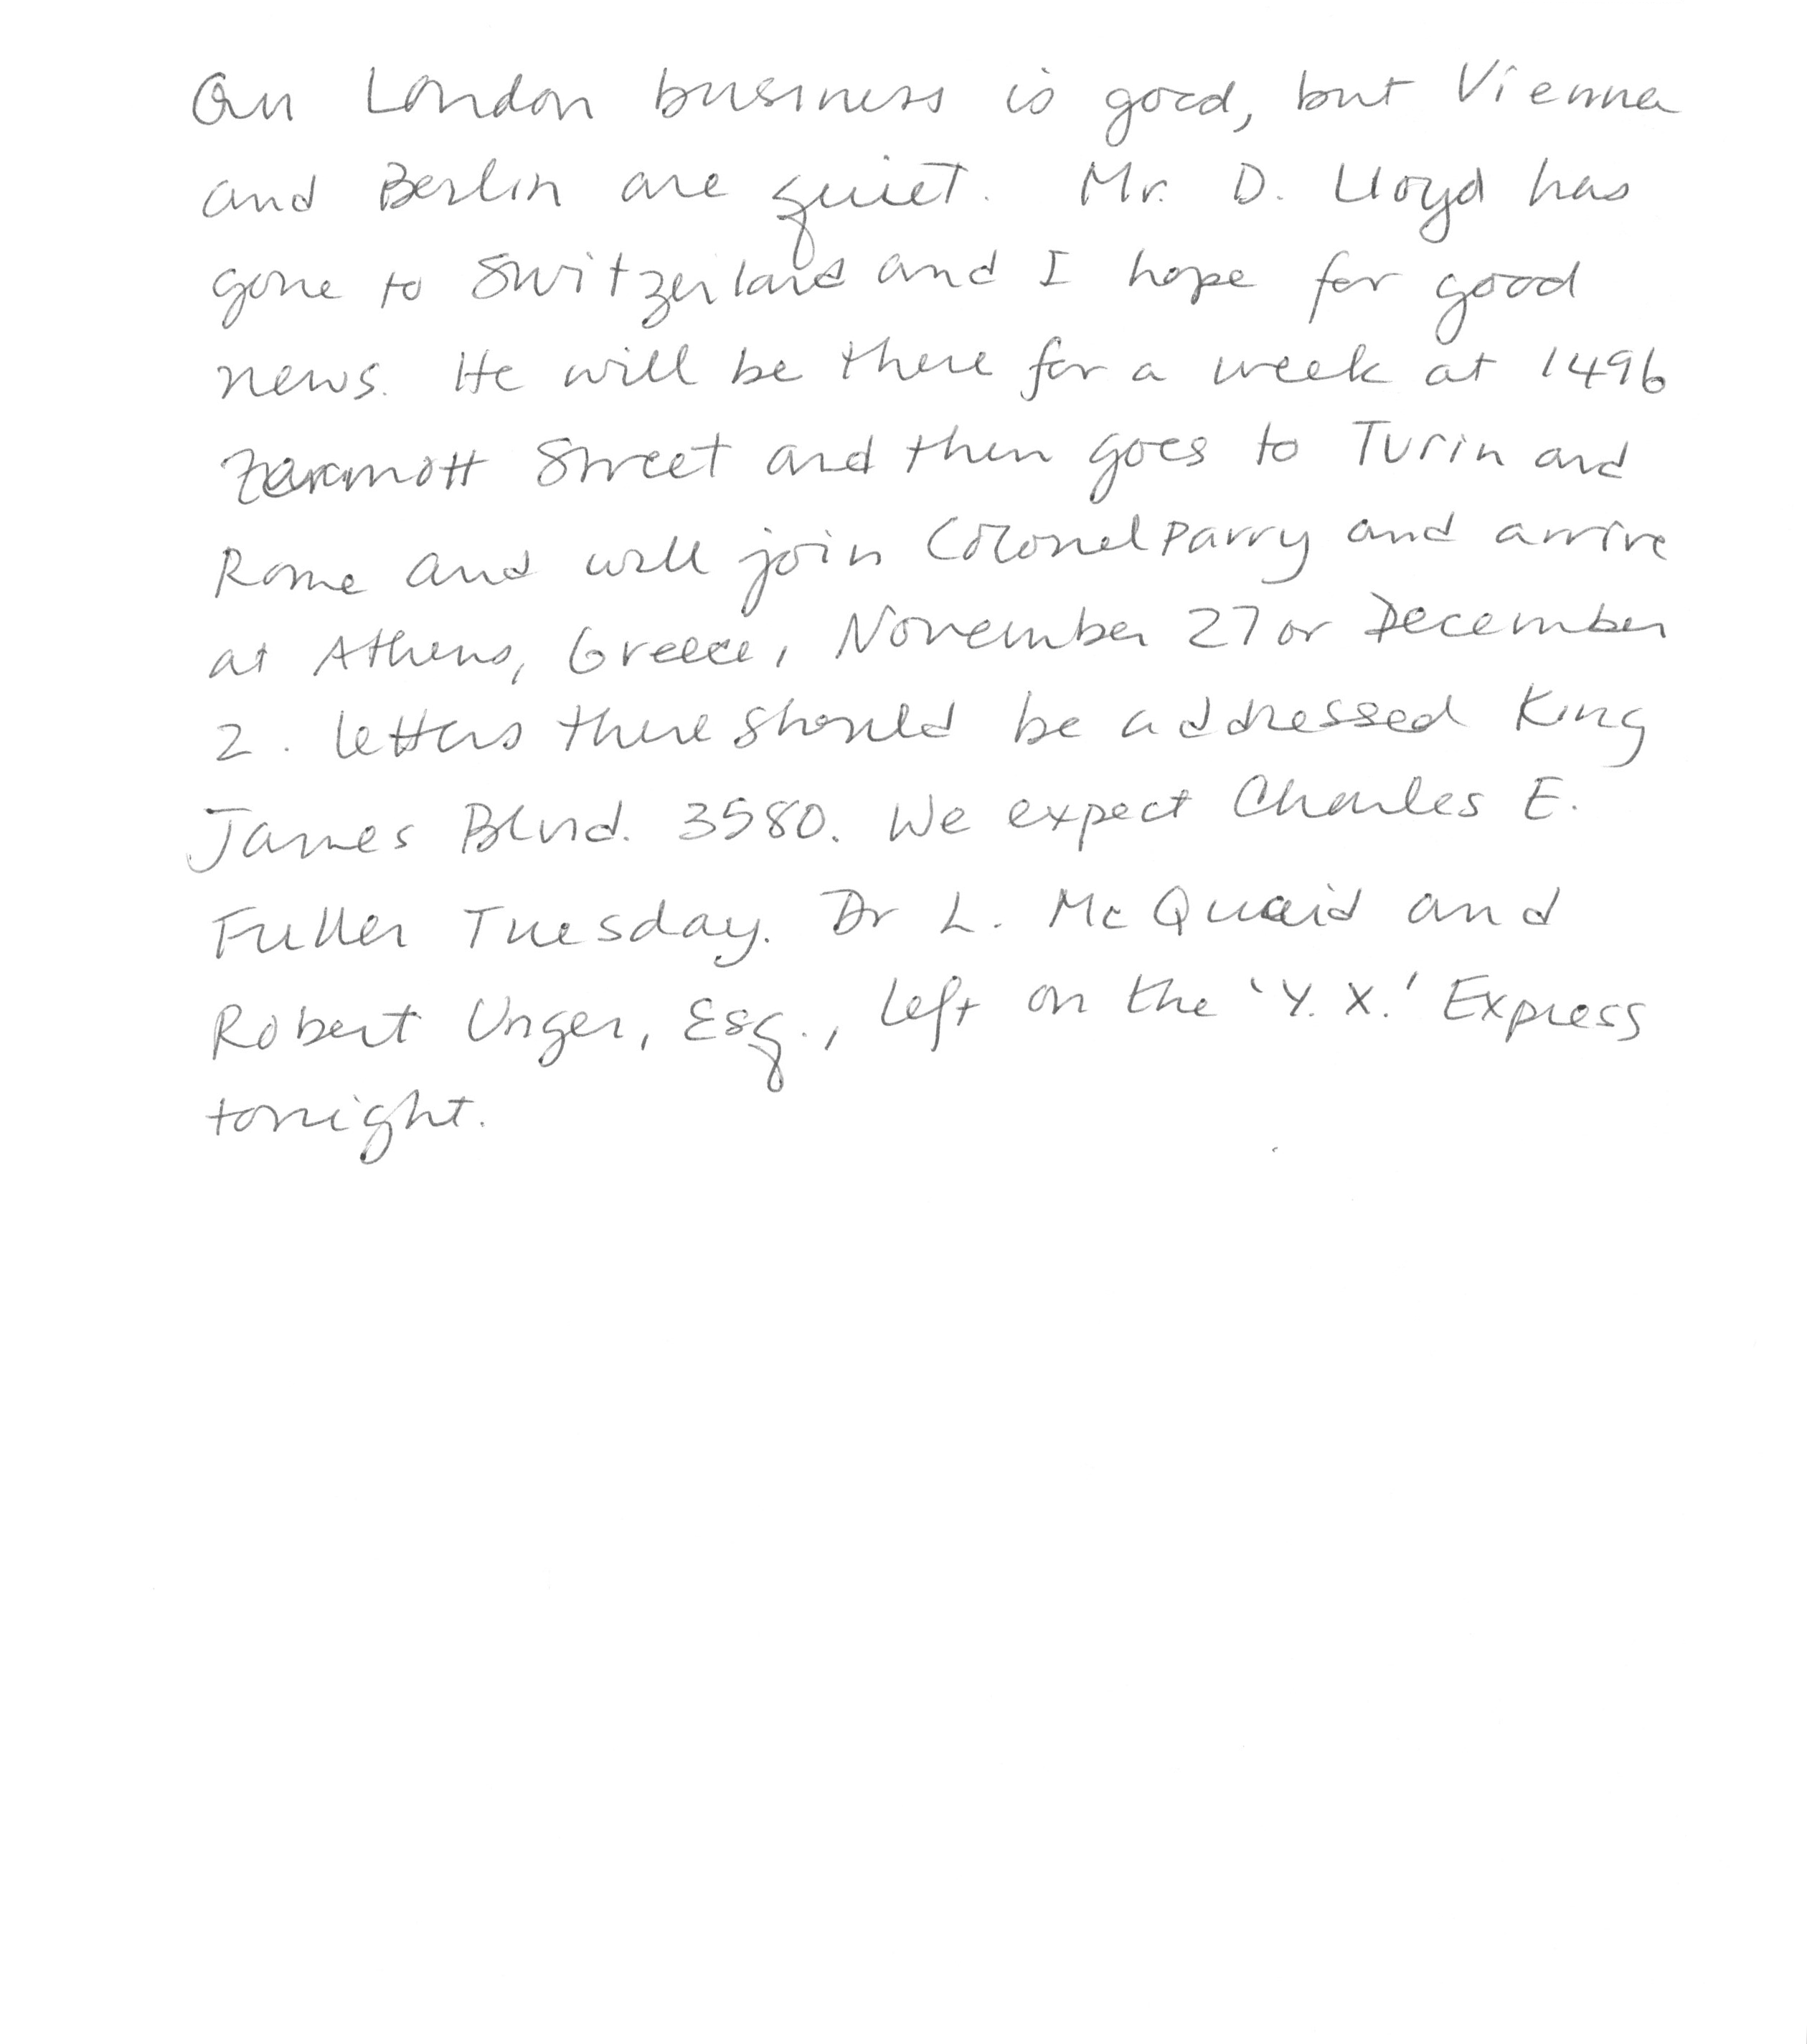 Our London business is good, but Vienna
and Berlin are quiet. Mr. D. Lloyd has
gone to Switzerland and I hope for good
news. He will be there for a week at 1496
Zermott Street and then goes to Turin and
Rome and will join Colonel Parry and arrive
at Athens, Greece, November 27 or December
2. Letters there should be addressed King
James Blvd. 3580. We expect Charles E.
Fuller Tuesday. Dr L. McQuaid and
Robert Unger, Esq., left on the 'Y. X.' Express
tonight.